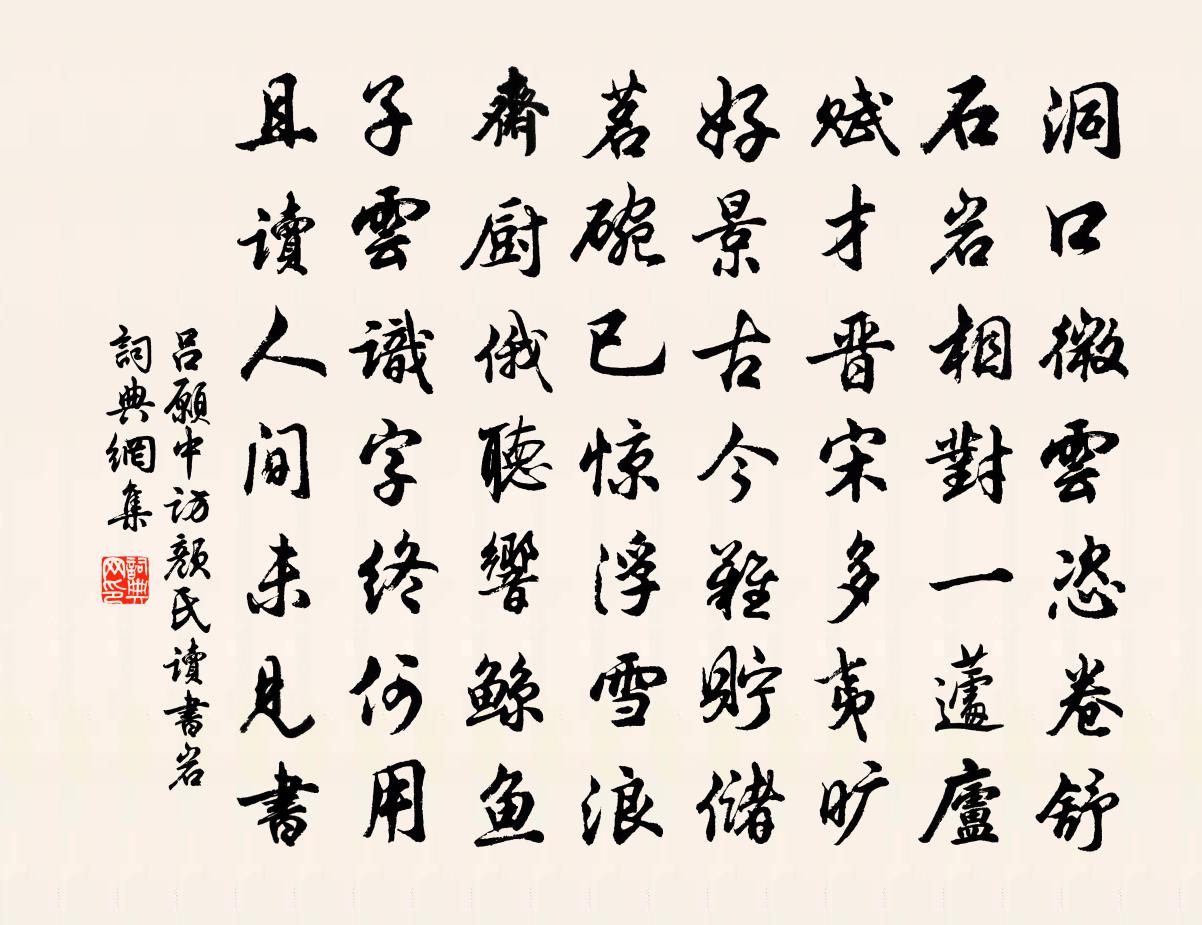 洞口微雲恣卷舒
石岩相對一蘧廬
賦才晋宋多夷旷
好景古今難貯儲
茗碗已惊浮雪浪
齋厨俄聽響鲸鱼
子雲識字终何用
且讀人间未見書
吕願中访颜氏讀書岩
詞典網集
詞典
网印